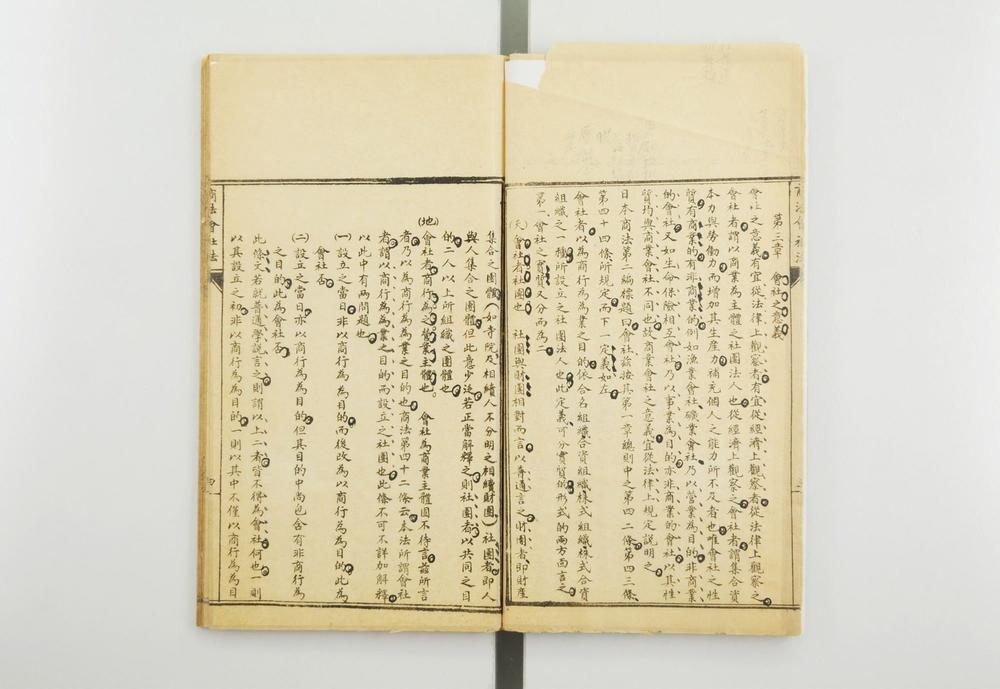 商法會社法
第三章 會社之意義
會社之意義有宜從法律上觀察者有宜從經濟上觀察者從法律上觀察之
會社者謂以商業為主體之社團法人也從經濟上觀察之會社者謂集合資
本力與勞働力而增加其生産力補充個人之能力所不及者也惟會社之性
質有商業的有非商業的如漁業會社礦業會社乃以營業為目的非商業
的會社又如生命保險相互會社乃以事業為目的亦非商業的會社以其性
質均與商業會社不同也故商業會社之意義宜從法律上規定說明之
日本商法第二編標題曰會社茲按其第一章總則中之第四二條第四三條
第四十四條所規定而下一定義如左
會社者以為商行為為業之目的依合名組織合資組織株式組織株式合資
組織之一種所設立之社團法人也此定義可分實質的形式的兩方面言之
第一會社之實質又分而為二
(天)會社者社團也 社團與財團相對而言以普通言之財團者即財産
集合之團體(如寺院及相續人不分明之相續財團)社團者即人
與人集合之團體但此意少泛若正當解釋之則社團者以共同之目
的二人以上所組織之團體也
(地)會社者商行為之營業主體也。 會社為商業主體固不待言茲所言
者乃以為商行為為業之目的也商法第四十二條云本法所謂會社
者謂以商行為為業之目的而設立之社團也此條不可不詳加解釋
以此中有兩問題也
(一)設立之當日非以商行為為目的而後改為以商行為為目的此為
會社否
(二)設立之當日亦以商行為為目的但其目的中尚包含有非商行為
之目的此為會社否
此條文若就普通學說言之則謂以上二者皆不得為會社何也一則
以其設立之初非以商行為為目的一則以其中不僅以商行為為目
商法會社法
四